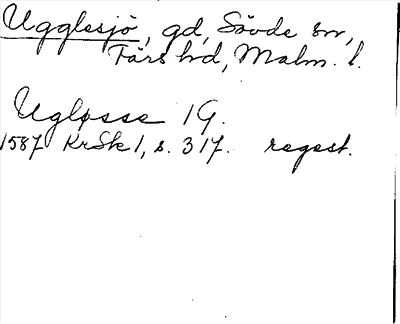 Ugglesjö, gd, Sövde sn,
Färs hd, Malm. l.
Ugløsse 1 G.
1587 KrSk 1, s. 317. regest.